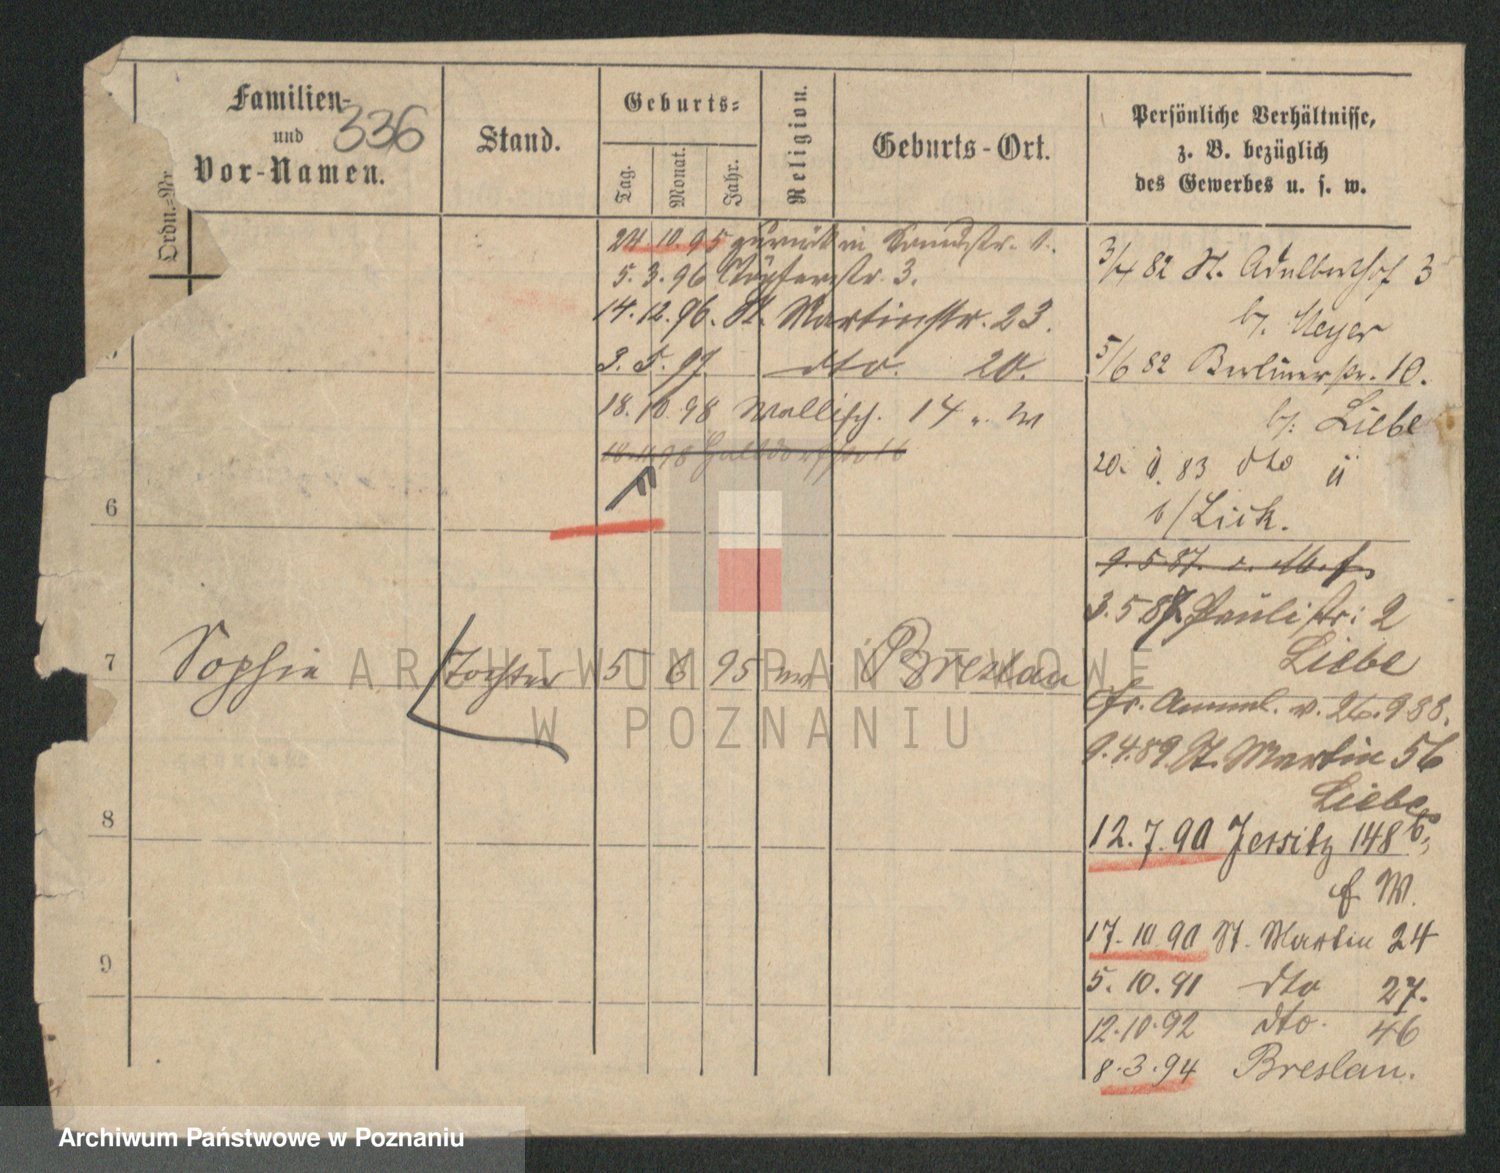 Ordn.-Nr.
Familien-
und
Vor-Namen.
336
Stand.
Geburts-
Tag.
Monat.
Jahr.
Religion.
Geburts-Ort.
Persönliche Verhältnisse,
z. B. bezüglich
des Gewerbes u. s. w.
24 10 95 zurück in
5. 3. 96 Töpferstr. 3.
14. 12. 96. St. Martinstr. 23.
3. 5. 97. dto. 20.
18. 10. 98 Wallisch. 14
6
7 Sophie Tochter 5 6 95 Breslau
8
9
3/4 82 St. Adalberthof 3
b/. Meyer
5/6 82 Berlinerstr. 10.
b/. Liebe
20. 83 dto
b/
9. 5 87.
3. 5 87. Paulistr: 2
Liebe
fr. v. 26. 9 88.
9. 4. 89. St. Martin 56
Liebe
12. 7. 90 Jersitz 148 b,
W.
17. 10 90 St. Martin 24
5. 10. 91 dto 27.
12. 10. 92 dto. 46
8. 3. 94 Breslau.
ARCHIWUM PAŃSTWOWE
W POZNANIU
Archiwum Państwowe w Poznaniu